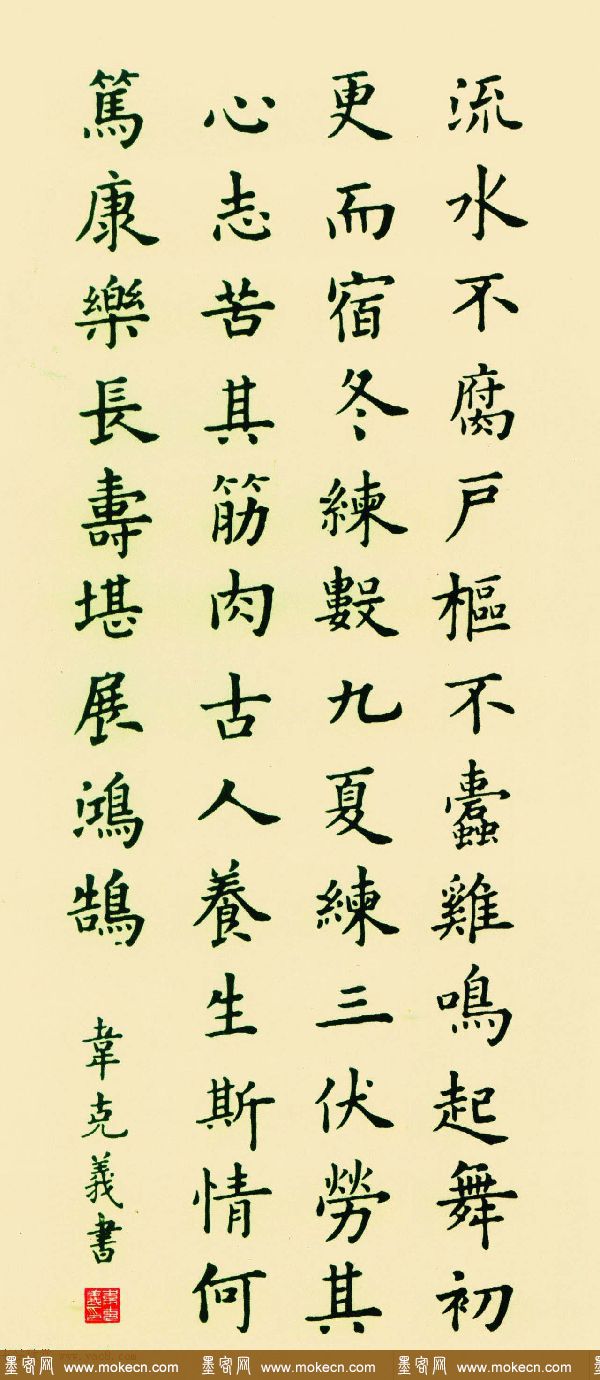 流水不腐戶樞不蠹雞鳴起舞初
更而宿冬練數九夏練三伏勞其
心志苦其筋肉古人養生斯情何
篤康樂長壽堪展鴻鵠
韋克義書
墨客网 www.mokecn.com 墨客网 www.mokecn.com 墨客网 www.mokecn.com